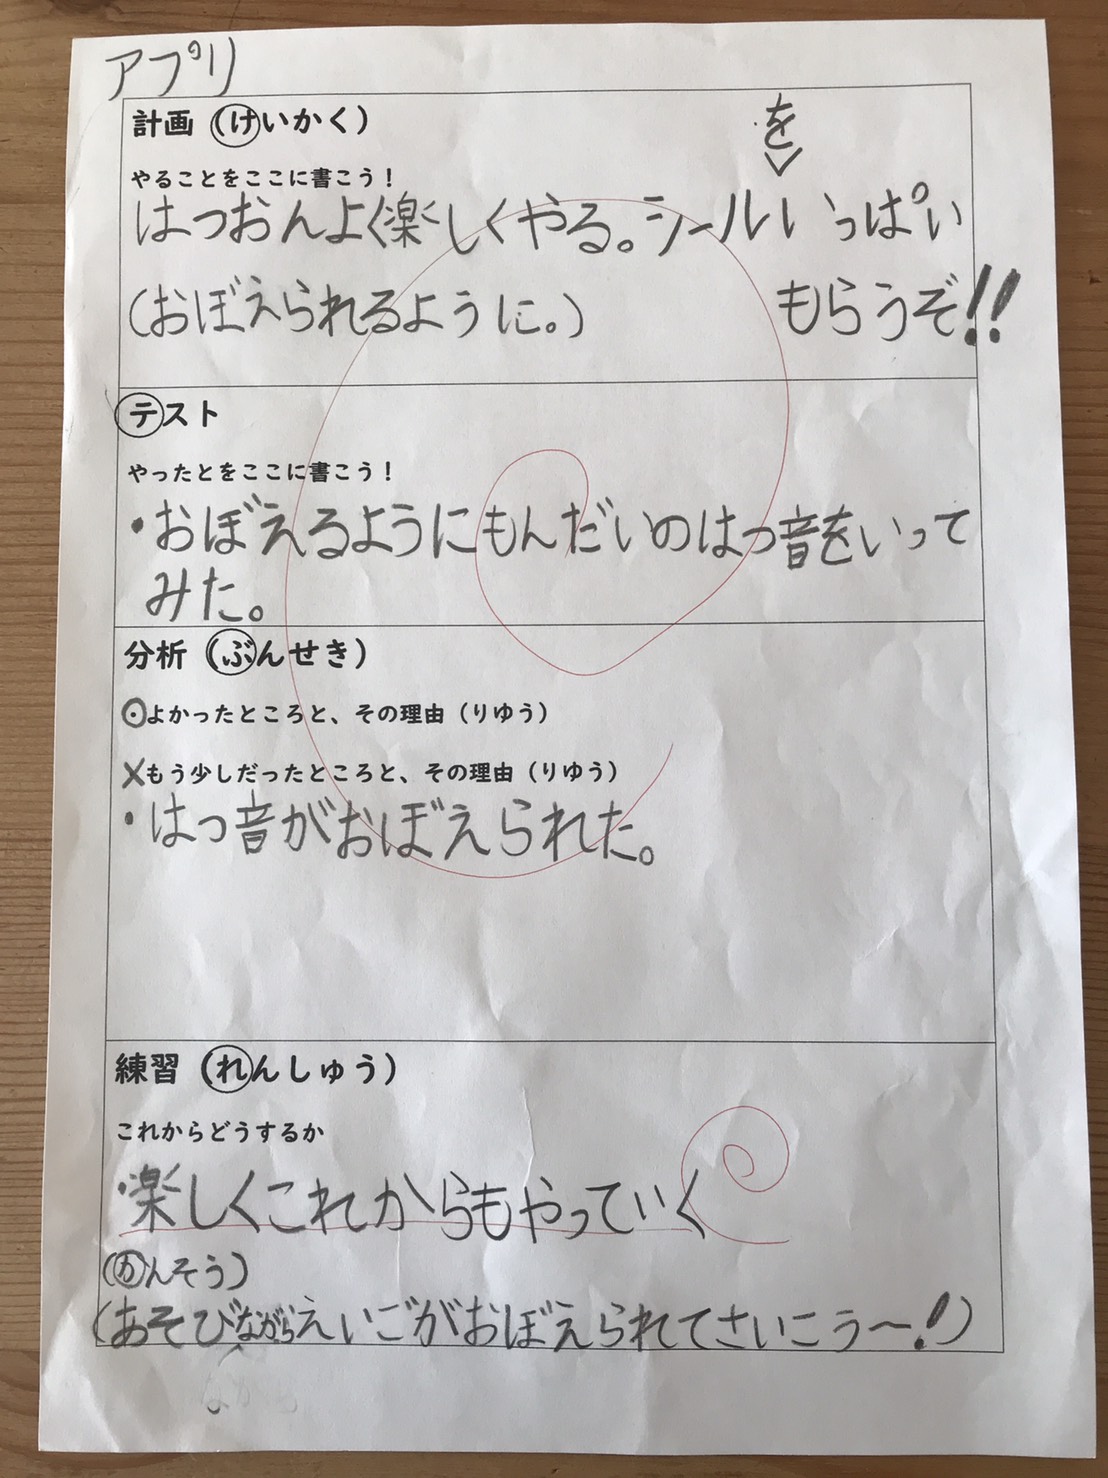 アプリ
計画（けいかく）
やることをここに書こう！
はつおんよく楽しくやる。シールをいっぱい
(おぼえられるように。) もらうぞ!!
テスト
やったとをここに書こう！
・おぼえるようにもんだいのはっ音をいって
みた。
分析（ぶんせき）
◎よかったところと、その理由（りゆう）
×もう少しだったところと、その理由（りゆう）
・はっ音がおぼえられた。
練習（れんしゅう）
これからどうするか
・楽しくこれからもやっていく
(かんそう)
(あそびながらえいごがおぼえられてさいこう〜!)